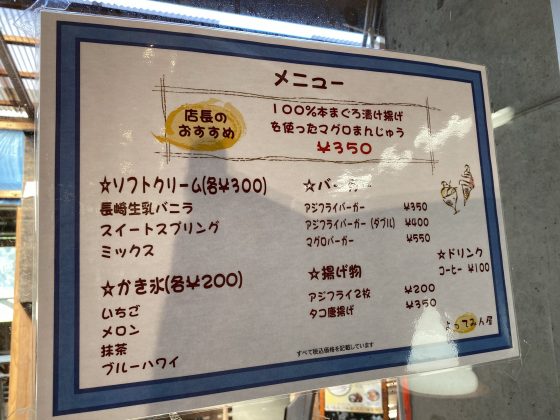 メニュー
店長の
おすすめ
100%本まぐろ漬け揚げ
を使ったマグロまんじゅう
¥350
☆ソフトクリーム(各¥300)
長崎生乳バニラ
スイートスプリング
ミックス
☆かき氷(各¥200)
いちご
メロン
抹茶
ブルーハワイ
☆バーガー
アジフライバーガー ¥350
アジフライバーガー(ダブル) ¥400
マグロバーガー ¥550
☆揚げ物
アジフライ2枚 ¥200
タコ唐揚げ ¥350
☆ドリンク
コーヒー ¥100
よってみん屋
すべて税込価格を記載しています